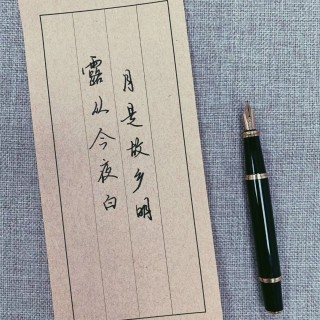 露从今夜白
月是故乡明